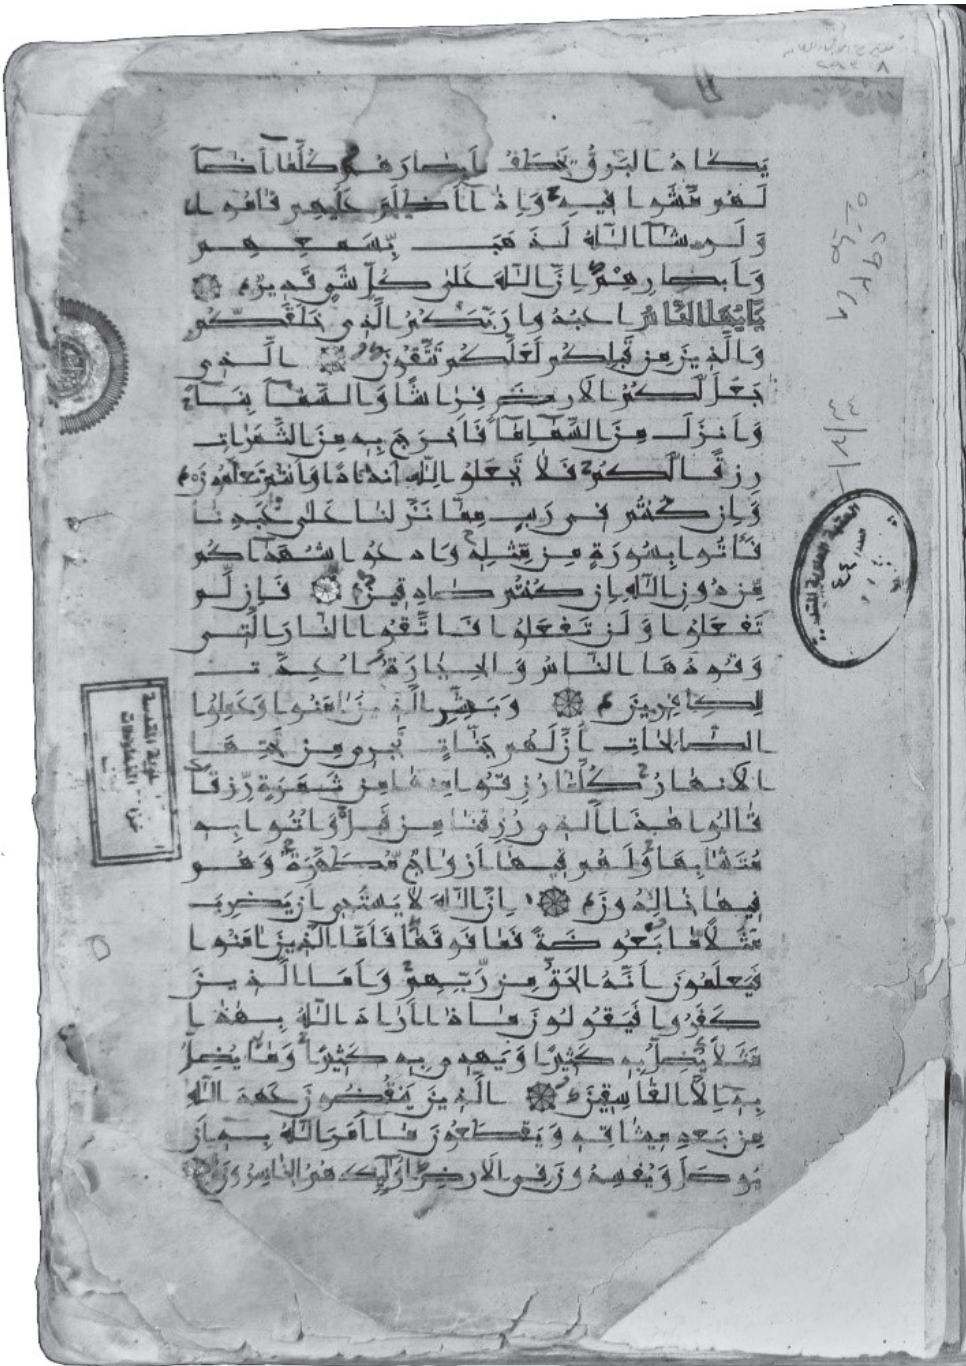 يَكَادُ الْبَرْقُ يَخْطَفُ أَبْصَارَهُمْ كُلَّمَا أَضَآءَ
لَهُمْ مَّشَوْا فِيهِ وَإِذَا أَظْلَمَ عَلَيْهِمْ قَامُوا
وَلَوْ شَآءَ اللَّهُ لَذَهَبَ بِسَمْعِهِمْ
وَأَبْصَارِهِمْ إِنَّ اللَّهَ عَلَىٰ كُلِّ شَىْءٍ قَدِيرٌ
يَأَيُّهَا النَّاسُ اعْبُدُوا رَبَّكُمُ الَّذِي خَلَقَكُمْ
وَالَّذِينَ مِنْ قَبْلِكُمْ لَعَلَّكُمْ تَتَّقُونَ الَّذِي
جَعَلَ لَكُمُ الْأَرْضَ فِرَاشًا وَالسَّمَآءَ بِنَآءً
وَأَنْزَلَ مِنَ السَّمَآءِ مَآءً فَأَخْرَجَ بِهِ مِنَ الثَّمَرَاتِ
رِزْقًا لَّكُمْ فَلَا تَجْعَلُوا لِلَّهِ أَنْدَادًا وَأَنْتُمْ تَعْلَمُونَ
وَإِنْ كُنْتُمْ فِي رَيْبٍ مِمَّا نَزَّلْنَا عَلَىٰ عَبْدِنَا
فَأْتُوا بِسُورَةٍ مِنْ مِّثْلِهِ وَادْعُوا شُهَدَآءَكُمْ
مِّنْ دُونِ اللَّهِ إِنْ كُنْتُمْ صَادِقِينَ فَإِنْ لَّمْ
تَفْعَلُوا وَلَنْ تَفْعَلُوا فَاتَّقُوا النَّارَ الَّتِي
وَقُودُهَا النَّاسُ وَالْحِجَارَةُ أُعِدَّتْ
لِلْكَافِرِينَ وَبَشِّرِ الَّذِينَ آمَنُوا وَعَمِلُوا
الصَّالِحَاتِ أَنَّ لَهُمْ جَنَّاتٍ تَجْرِي مِنْ تَحْتِهَا
الْأَنْهَارُ كُلَّمَا رُزِقُوا مِنْهَا مِنْ ثَمَرَةٍ رِّزْقًا
قَالُوا هَٰذَا الَّذِي رُزِقْنَا مِنْ قَبْلُ وَأُتُوا بِهِ
مُتَشَابِهًا وَلَهُمْ فِيهَا أَزْوَاجٌ مُّطَهَّرَةٌ وَهُمْ
فِيهَا خَالِدُونَ إِنَّ اللَّهَ لَا يَسْتَحْيِ أَنْ يَضْرِبَ
مَثَلًا مَّا بَعُوضَةً فَمَا فَوْقَهَا فَأَمَّا الَّذِينَ آمَنُوا
فَيَعْلَمُونَ أَنَّهُ الْحَقُّ مِنْ رَّبِّهِمْ وَأَمَّا الَّذِينَ
كَفَرُوا فَيَقُولُونَ مَاذَا أَرَادَ اللَّهُ بِهَٰذَا
مَثَلًا يُضِلُّ بِهِ كَثِيرًا وَيَهْدِي بِهِ كَثِيرًا وَمَا يُضِلُّ
بِهِ إِلَّا الْفَاسِقِينَ الَّذِينَ يَنْقُضُونَ عَهْدَ اللَّهِ
مِنْ بَعْدِ مِيثَاقِهِ وَيَقْطَعُونَ مَا أَمَرَ اللَّهُ بِهِ أَنْ
يُوصَلَ وَيُفْسِدُونَ فِي الْأَرْضِ أُولَٰئِكَ هُمُ الْخَاسِرُونَ